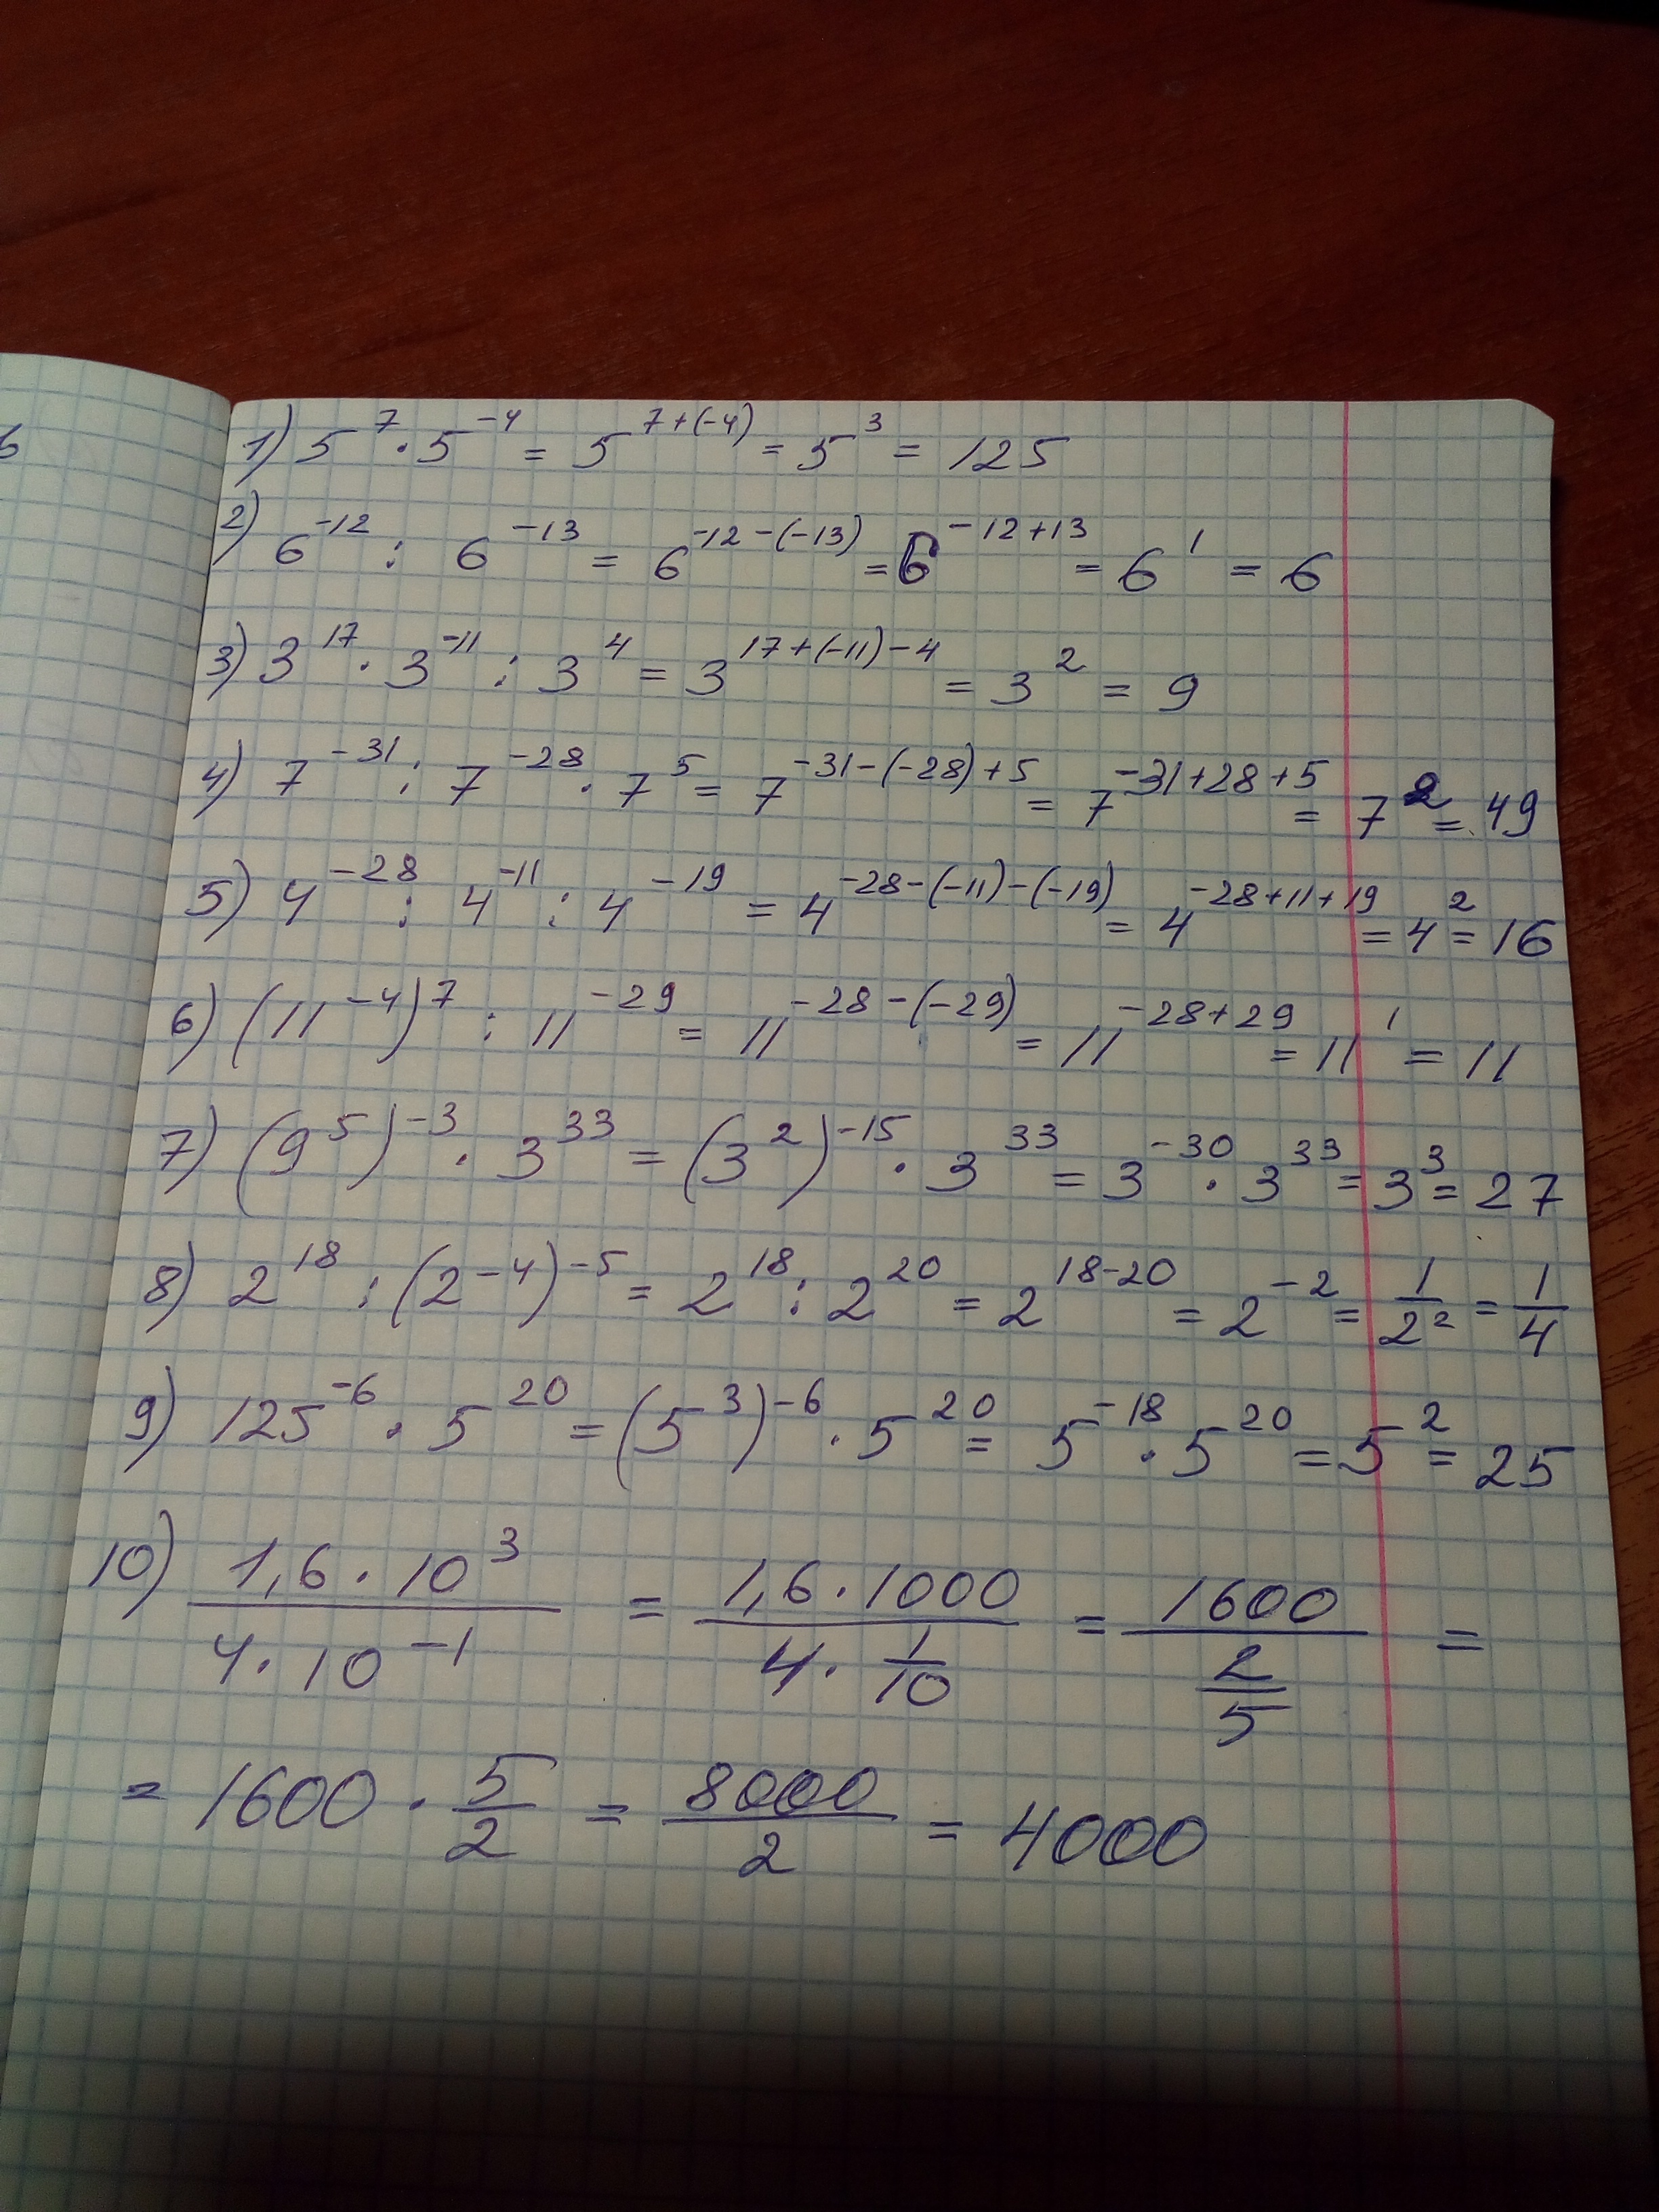 1) 5^7 · 5^-4 = 5^7+(-4) = 5^3 = 125
2) 6^-12 : 6^-13 = 6^-12-(-13) = 6^-12+13 = 6^1 = 6
3) 3^17 · 3^-11 : 3^4 = 3^17+(-11)-4 = 3^2 = 9
4) 7^-31 : 7^-28 · 7^5 = 7^-31-(-28)+5 = 7^-31+28+5 = 7^2 = 49
5) 4^-28 : 4^-11 : 4^-19 = 4^-28-(-11)-(-19) = 4^-28+11+19 = 4^2 = 16
6) (11^-4)^7 : 11^-29 = 11^-28-(-29) = 11^-28+29 = 11^1 = 11
7) (9^5)^-3 · 3^33 = (3^2)^-15 · 3^33 = 3^-30 · 3^33 = 3^3 = 27
8) 2^18 : (2^-4)^-5 = 2^18 : 2^20 = 2^18-20 = 2^-2 = 1/2^2 = 1/4
9) 125^-6 · 5^20 = (5^3)^-6 · 5^20 = 5^-18 · 5^20 = 5^2 = 25
10) (1,6 · 10^3)/(4 · 10^-1) = (1,6 · 1000)/(4 · 1/10) = 1600/(2/5) =
= 1600 · 5/2 = 8000/2 = 4000